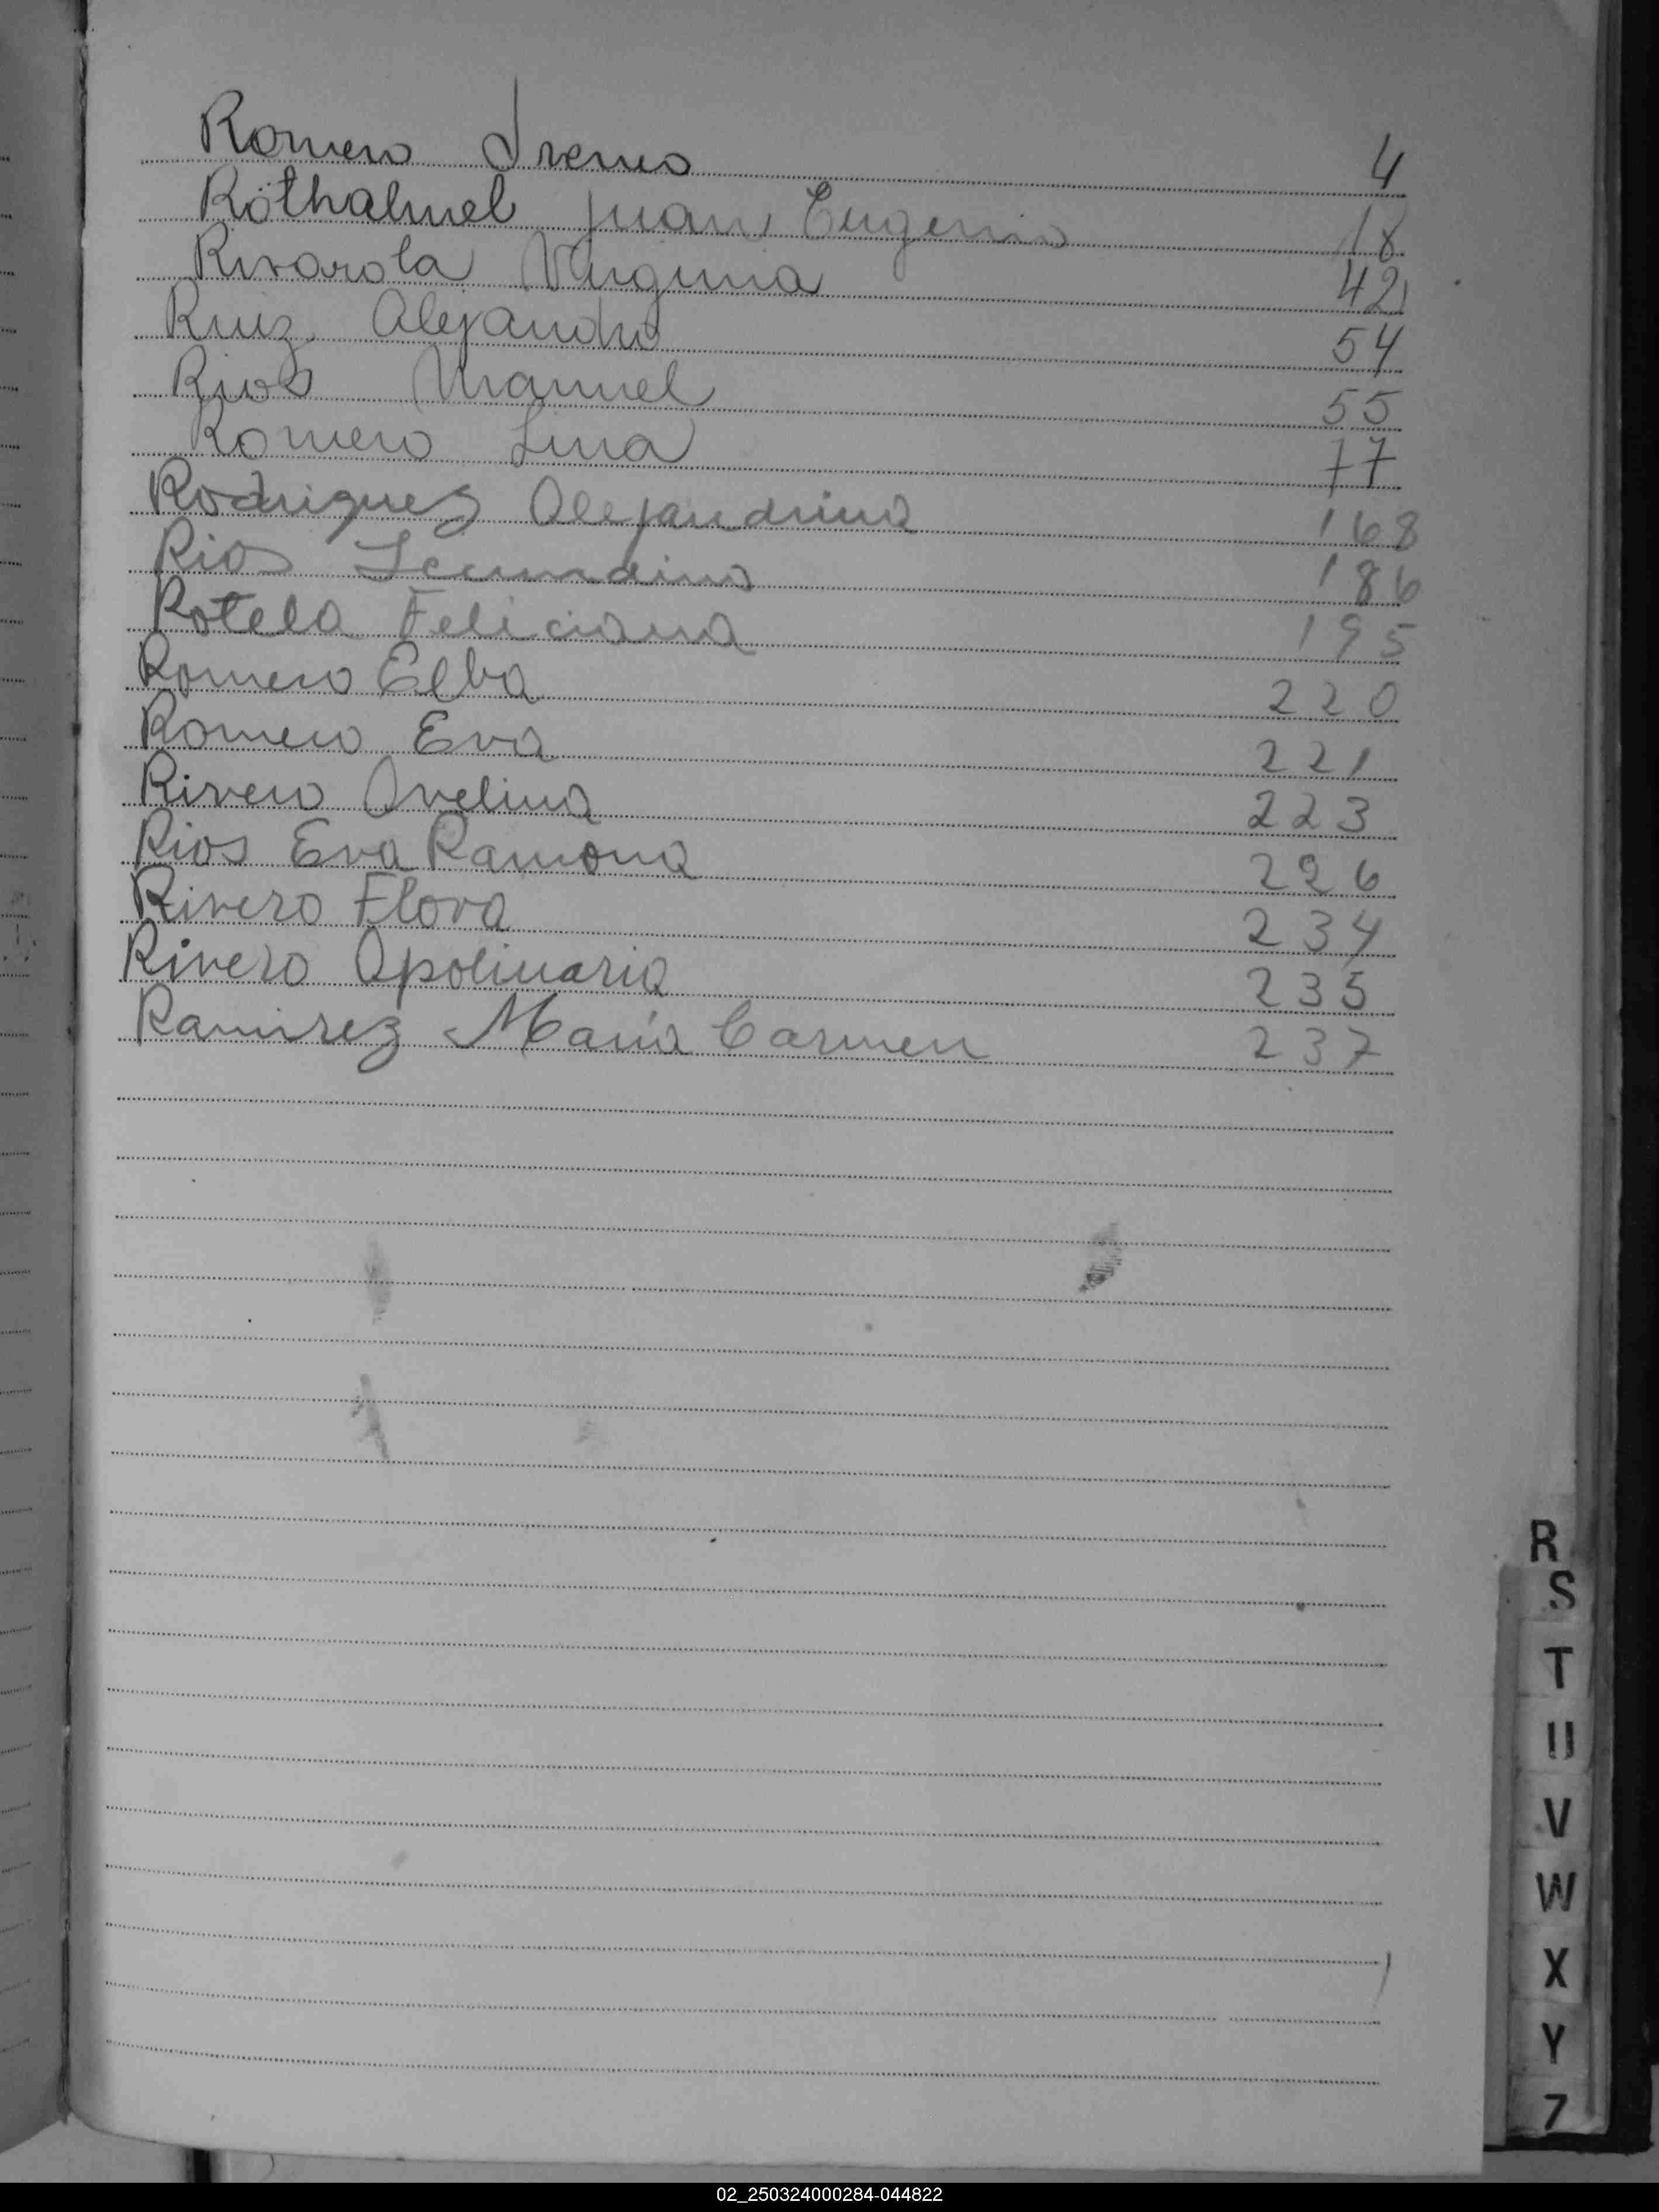 Romero Ireneo 4
Röthalmel Juan Eugenio 18
Rivarola Virginia 42
Ruiz Alejandro 54
Rios Manuel 55
Romero Lina 77
Rodriguez Alejandrina 168
Rios Secundino 186
Rotela Feliciana 195
Romero Elba 220
Romero Eva 221
Rivero Avelina 223
Rios Eva Ramona 226
Rivero Flora 234
Rivero Apolinaria 235
Ramirez María Carmen 237
R
S
T
U
V
W
X
Y
Z
02_250324000284-044822